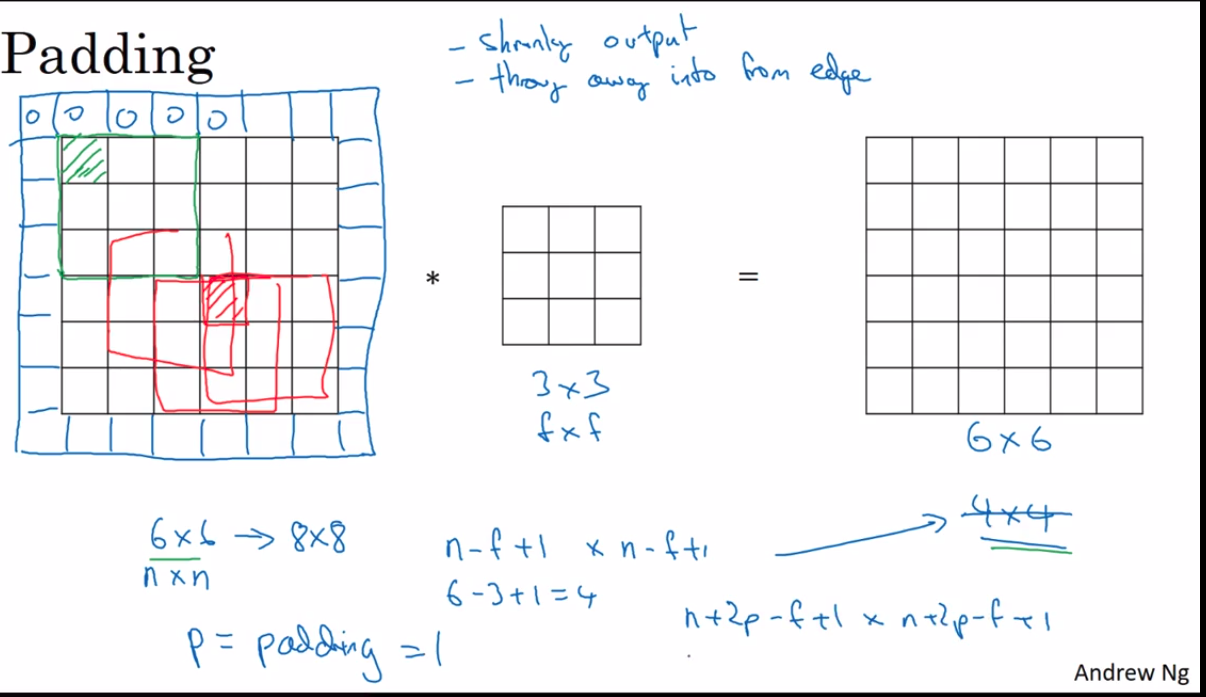 Padding
- shrinky output
- throw away info from edge
0 0 0 0 0
*
=
3 x 3
f x f
6 x 6
6 x 6 → 8x8
n x n
n - f + 1 x n - f + 1
4x4
6 - 3 + 1 = 4
n+2p-f+1 x n+2p-f+1
p = padding = 1
Andrew Ng